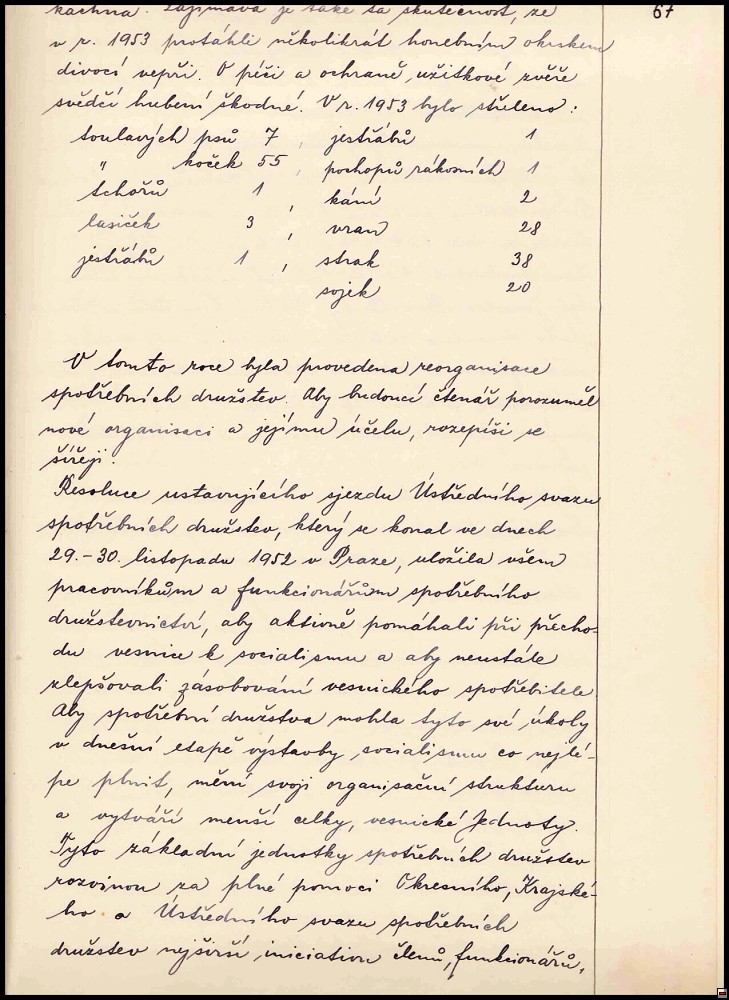 67
kachna. Zajímavá je také ta skutečnost, že
v r. 1953 protáhli několikrát honebním okrskem
divocí vepři. O péči a ochraně užitkové zvěře
svědčí hubení škodné. V r. 1953 bylo střeleno:
toulavých psů 7, jestřábů 1
" koček 55, pochopů rákosních 1
tchořů 1, kání 2
lasiček 3, vran 28
jestřábů 1, strak 38
sojek 20
V tomto roce byla provedena reorganisace
spotřebních družstev. Aby budoucí čtenář porozuměl
nové organisaci a jejímu účelu, rozepíši se
šířeji.
Resoluce ustavujícího sjezdu Ústředního svazu
spotřebních družstev, který se konal ve dnech
29.-30. listopadu 1952 v Praze, uložila všem
pracovníkům a funkcionářům spotřebního
družstevnictví, aby aktivně pomáhali při přecho-
du vesnice k socialismu a aby neustále
zlepšovali zásobování vesnického spotřebitele
Aby spotřební družstva mohla tyto své úkoly
v dnešní etapě výstavby socialismu co nejlé-
pe plnit, mění svoji organisační strukturu
a vytváří menší celky, vesnické Jednoty.
Tyto základní jednotky spotřebních družstev
rozvinou za plné pomoci Okresního, Krajské-
ho a Ústředního svazu spotřebních
družstev nejširší iniciativu členů, funkcionářů,